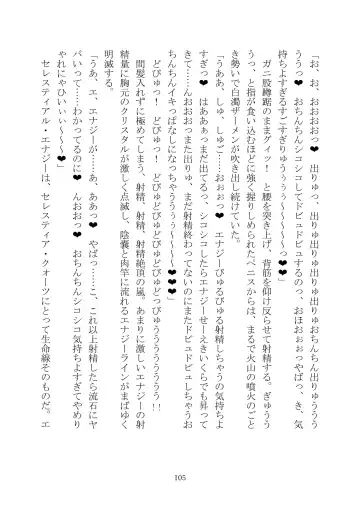 「お、お、おおおおっ❤　出りゅっ、出りゅ出りゅ出りゅおちんちん出りゅううう
ううっ❤　おちんちんシコシコしてドビュドビュするのっ、おほおぉぉっやばっ、き、気
持ちよすぎるすごすぎりゅうぅぅぅ～～～～～っ❤」
　ガニ股蹲踞のままグィッ！　と腰を突き上げ、背筋を仰け反らせて射精する。ぎゅうう
うっ、と指が食い込むほどに強く握りしめられたペニスからは、まるで火山の噴火のごと
き勢いで白濁ザーメンが吹き出し続けていた。
「うああ、しゅ、しゅごっ……おぉっっ❤　エナジーびゅるびゅる射精しちゃうの気持ちよ
すぎっ❤　はあぁぁっまだ出てるっ、シコシコしたらエナジーせーえきいくらでも昇って
きて……んおおおっまた出りゅ、まだ射精終わってないのにまたドビュドビュしちゃうお
ちんちんイキっぱなしになっちゃううぅぅ～～～っ❤❤❤」
　どびゅっ！　どびゅっ！　どびゅどびゅどびゅどびゅどっびゅうううううううう!!
　間髪入れずに極めてしまう、射精、射精、射精絶頂の嵐。あまりに激しいエナジーの射
精量に胸元のクリスタルが激しく点滅し、陰嚢と肉竿に流れるエナジーラインがまばゆく
明滅する。
「うあ、エ、エナジーが……あ、ああっ❤　やばっ……こ、これ以上射精したら流石にヤ
バいって……わかってるのに❤　んおおっ❤　おちんちんシコシコ気持ちよすぎてやめり
ゃれにゃひぃぃ～～～っ❤」
　セレスティアル・エナジーは、セレスティアル・クォーツにとって生命線そのものだ。エ
105